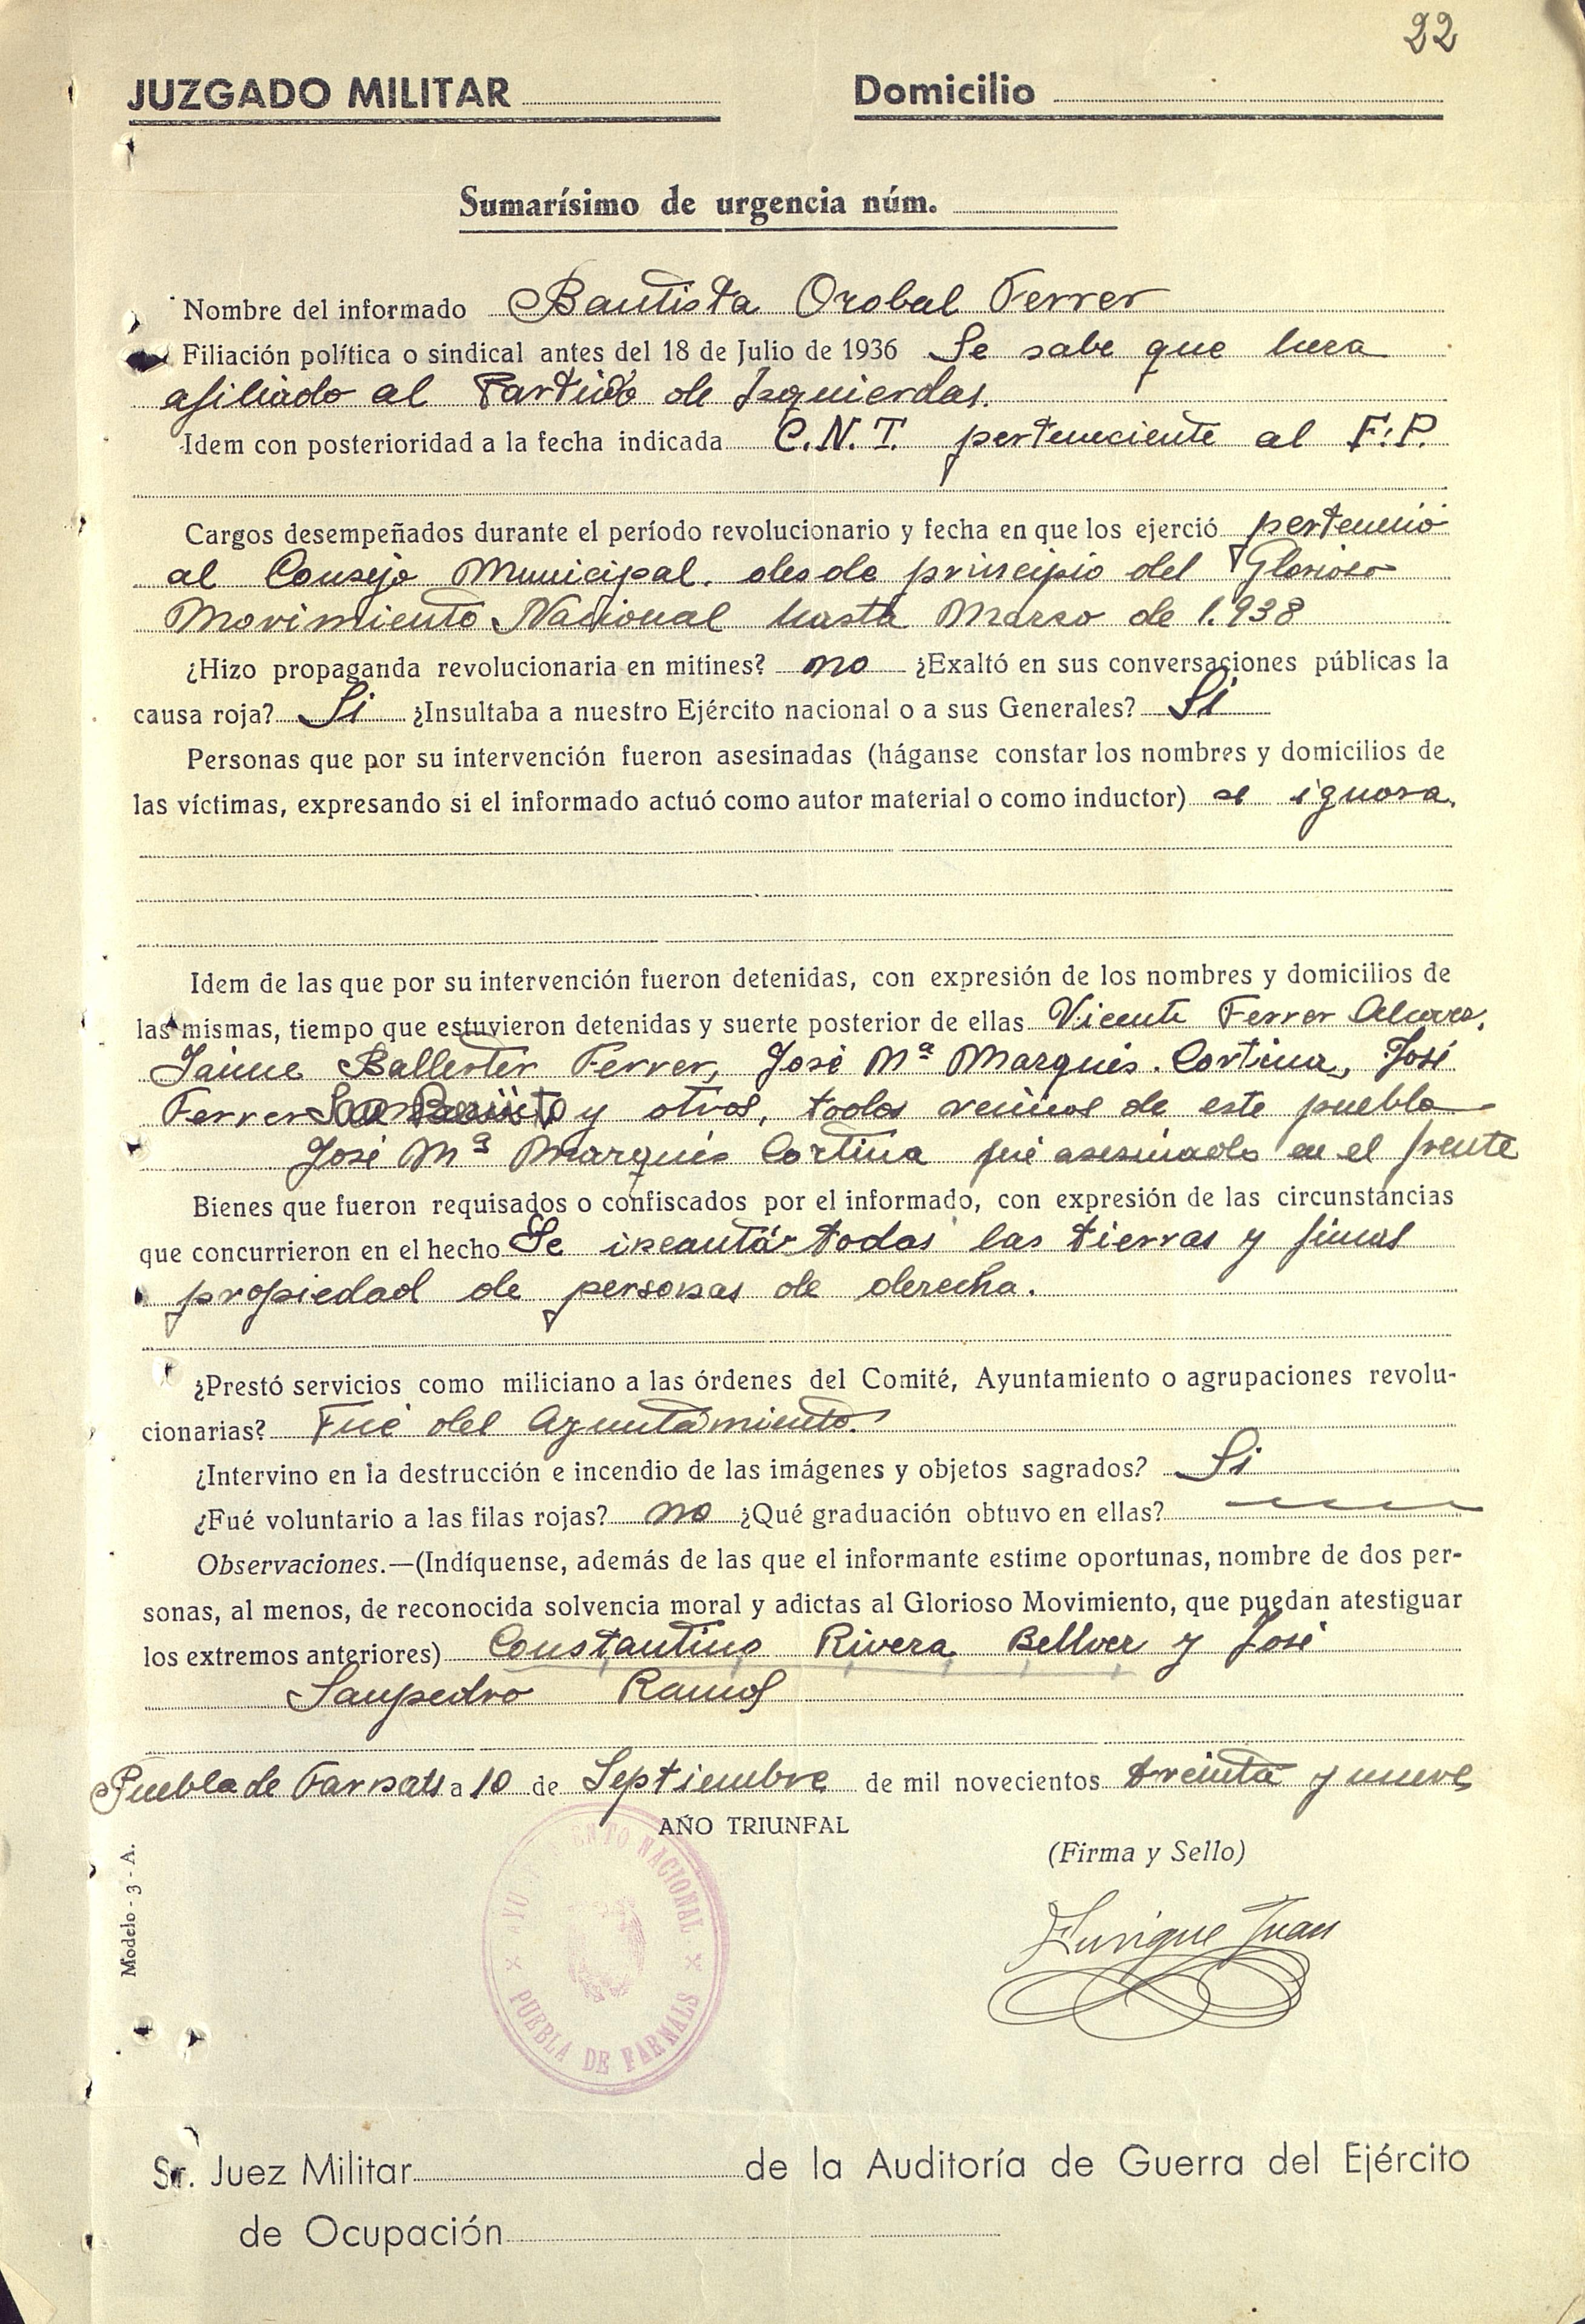 22
JUZGADO MILITAR
Domicilio
Sumarísimo de urgencia núm.
Nombre del informado Bautista Orobal Ferrer
Filiación política o sindical antes del 18 de Julio de 1936 Se sabe que hera
afiliado al Partido de Izquierdas.
Idem con posterioridad a la fecha indicada C.N.T. perteneciente al F.P.
Cargos desempeñados durante el período revolucionario y fecha en que los ejerció pertenció
al Consejo Municipal. desde principio del Glorioso
Movimiento Nacional hasta Marzo de 1.938
¿Hizo propaganda revolucionaria en mitines? no ¿Exaltó en sus conversaciones públicas la
causa roja? Si ¿Insultaba a nuestro Ejército nacional o a sus Generales? Si
Personas que por su intervención fueron asesinadas (háganse constar los nombres y domicilios de
las víctimas, expresando si el informado actuó como autor material o como inductor) se ignora.
Idem de las que por su intervención fueron detenidas, con expresión de los nombres y domicilios de
las mismas, tiempo que estuvieron detenidas y suerte posterior de ellas Vicente Ferrer
Jaime Ballester Ferrer, José Mª Marqués Cortina, José
Ferrer y otros, todos vecinos de este pueblo
José Mª Marqués Cortina fué asesinado en el frente
Bienes que fueron requisados o confiscados por el informado, con expresión de las circunstancias
que concurrieron en el hecho Se incautár todas las tierras y fincas
propiedad de personas de derecha.
¿Prestó servicios como miliciano a las órdenes del Comité, Ayuntamiento o agrupaciones revolu-
cionarias? Fué del Ayuntamiento.
¿Intervino en la destrucción e incendio de las imágenes y objetos sagrados? Si
¿Fué voluntario a las filas rojas? no ¿Qué graduación obtuvo en ellas?
Observaciones.—(Indíquense, además de las que el informante estime oportunas, nombre de dos per-
sonas, al menos, de reconocida solvencia moral y adictas al Glorioso Movimiento, que puedan atestiguar
los extremos anteriores) Constantino Rivera Bellver y José
Sanpedro Ramos
Puebla de Farnals a 10 de Septiembre de mil novecientos treinta y nueve
AÑO TRIUNFAL
(Firma y Sello)
NACIONAL
PUEBLA DE FARNALS
Enrique Juan
Modelo - 3 - A.
Sr. Juez Militar de la Auditoría de Guerra del Ejército
de Ocupación